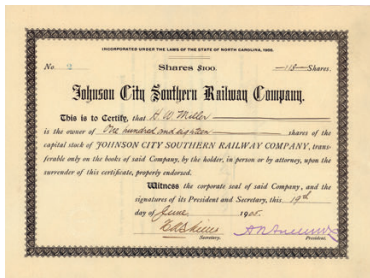 INCORPORATED UNDER THE LAWS OF THE STATE OF NORTH CAROLINA,
No. Shares $100. 118 Shares.
Johnson City Southern Railway Company.
This is to Certify, that H. W. Miller
is the owner of One hundred and eighteen shares of the
capital stock of JOHNSON CITY SOUTHERN RAILWAY COMPANY, trans-
ferable only on the books of said Company, by the holder, in person or by attorney, upon the
surrender of this certificate, properly endorsed.
Witness the corporate seal of said Company, and the
signatures of its President and Secretary, this 19th
day of June 1905.
Secretary. President.